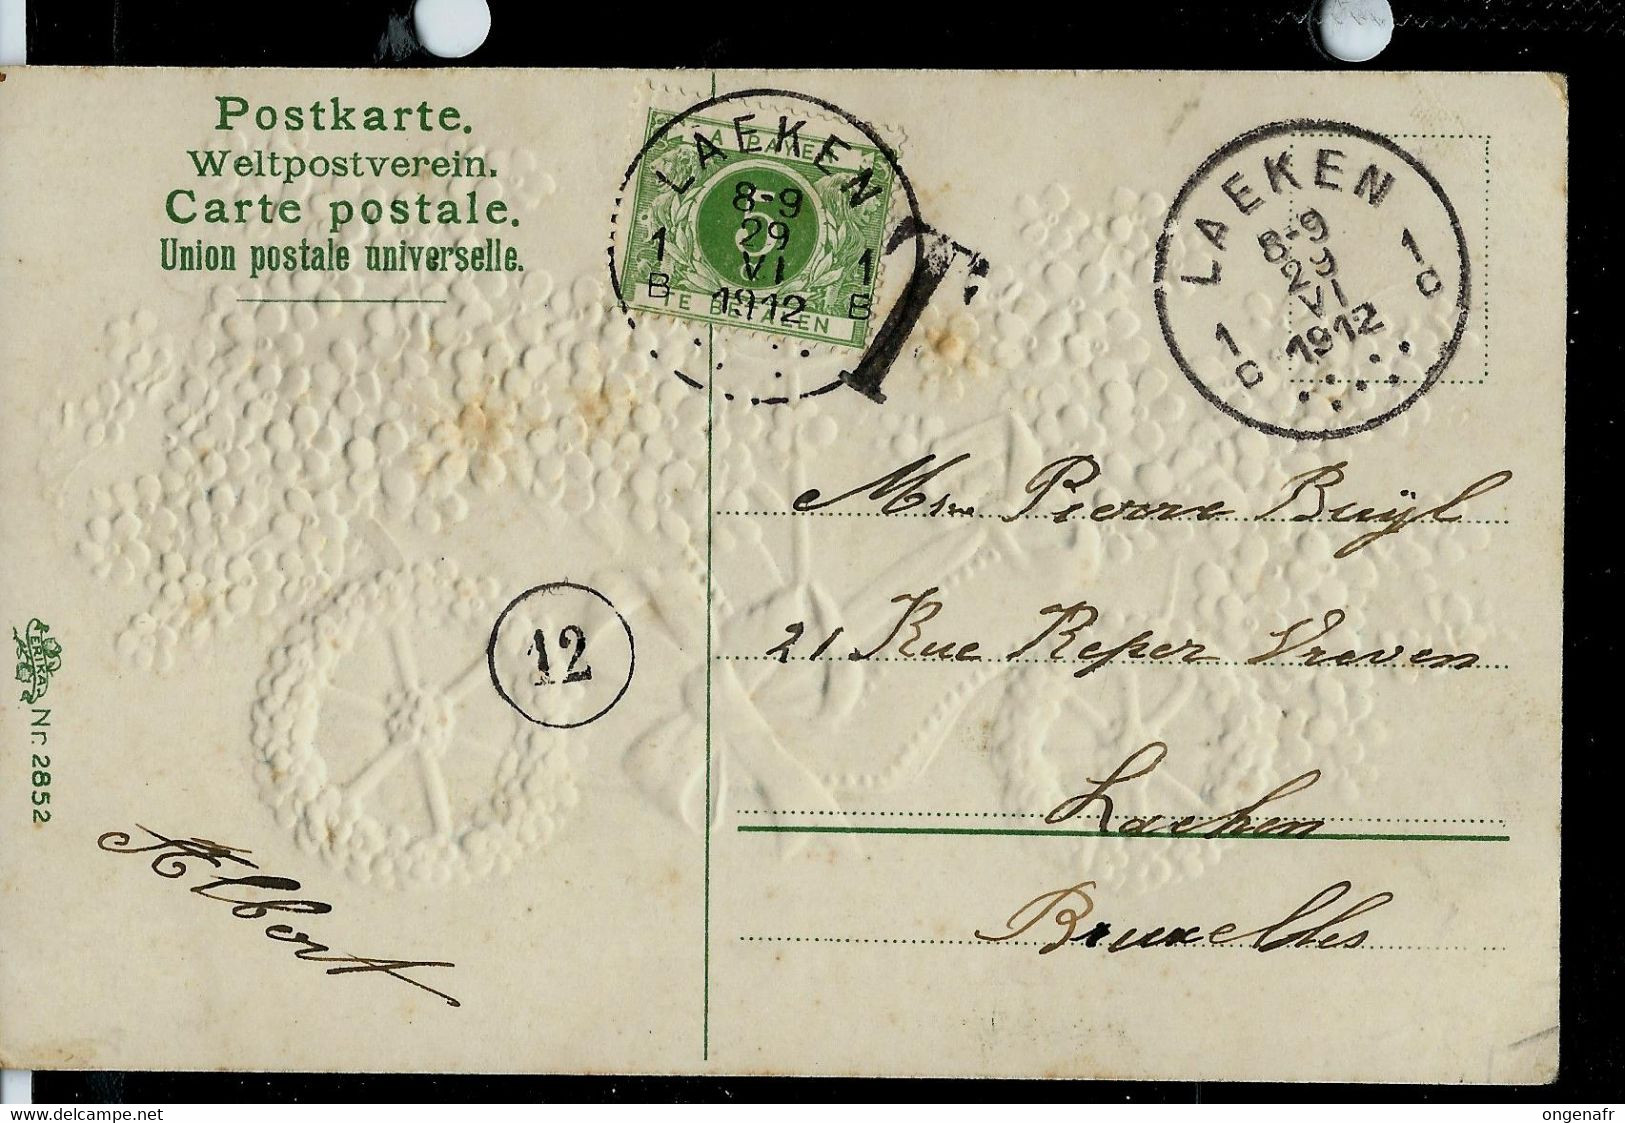 Postkarte.
Weltpostverein.
Carte postale.
Union postale universelle.
A PAYER
5
TE BETALEN
LAEKEN
8-9
29
VI
1912
1 1
B B
T
LAEKEN
8-9
29
VI
1912
1 1
C C
Mme Pierre Buÿl
21 Rue Reper Vreven
Laeken
Bruxelles
12
Albert
ERIKA
Nr. 2852
ongenafr